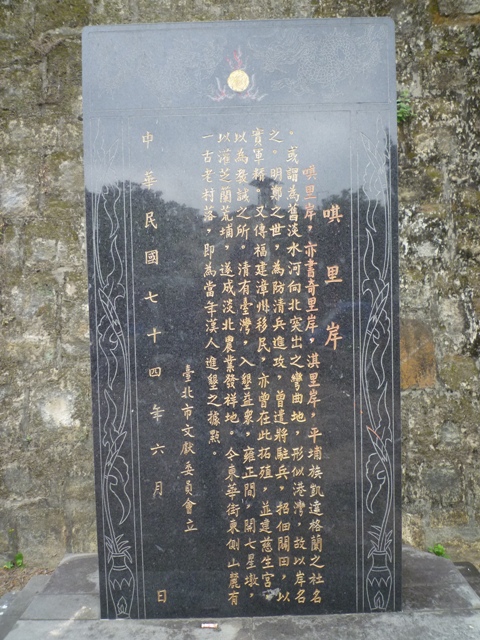 唭里岸
唭里岸，亦書奇里岸，淇里岸，平埔族凱達格蘭之社名
。或謂為舊淡水河向北突出之彎曲地，形似港灣，故以岸名
之。明鄭之世，為防清兵進攻，曾遣將駐兵，招佃闢田，以
實軍糈，又傳福建漳州移民，亦曾在此拓殖，並建慈生宮，
以為表誠之所。清有臺灣，入墾益衆，雍正間，開七星墩，
以灌芝蘭荒埔，遂成淡北農業發祥地。今東華街東側山麓有
一古老村落，即為當年漢人進墾之據點。
臺北市文獻委員會立
中華民國七十四年六月　日